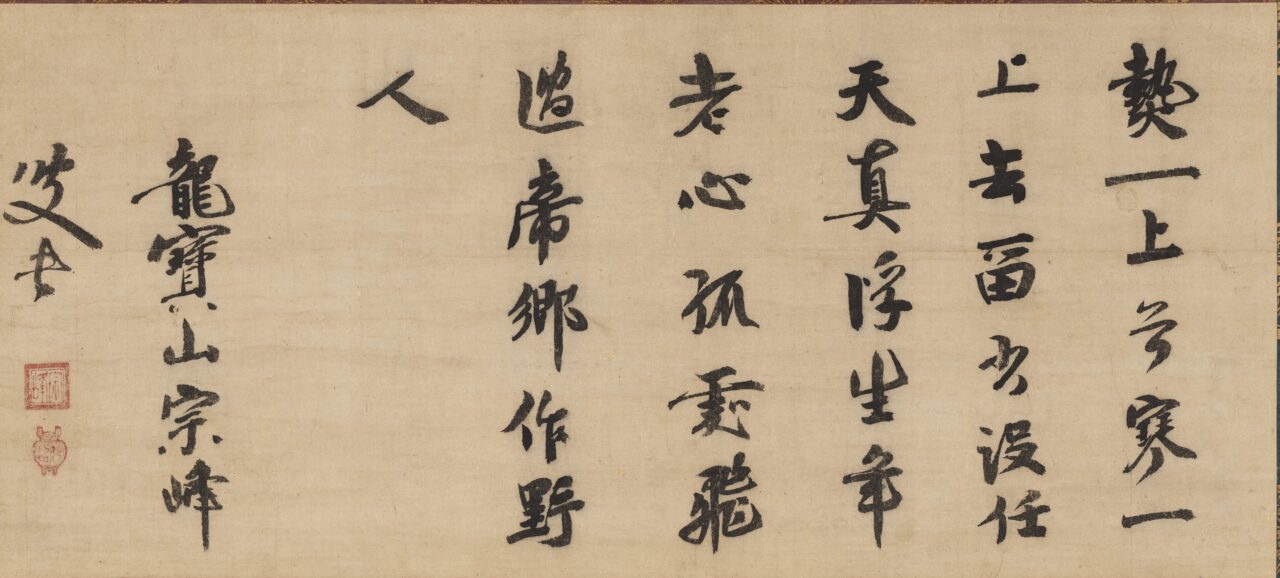 熱一上兮寒一
上去留出没任
天真浮生年
老心孤雲飛
過帝郷作野
人
龍寶山宗峰
叟書